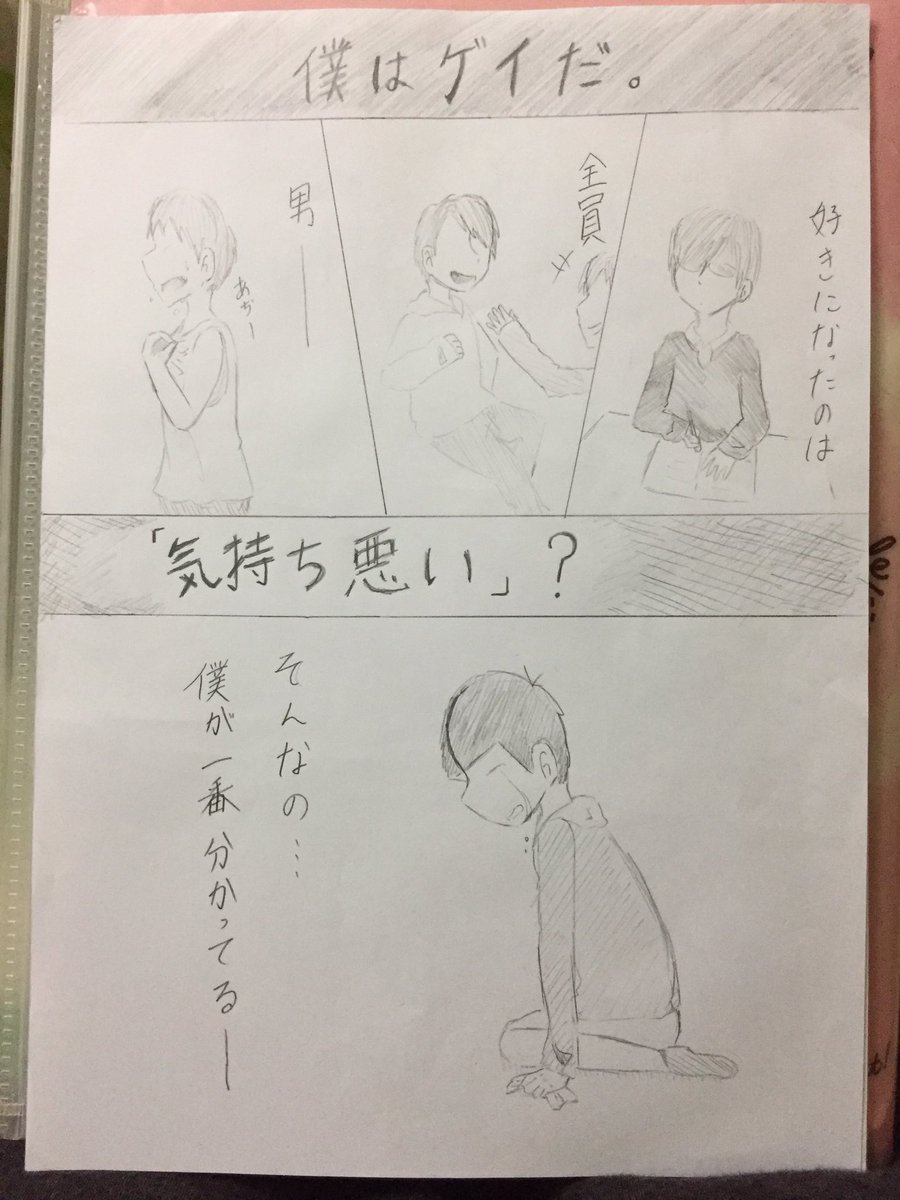 僕はゲイだ。
好きになったのは
全員
男――
あぢー
「気持ち悪い」?
そんなの…
僕が一番分かってる――